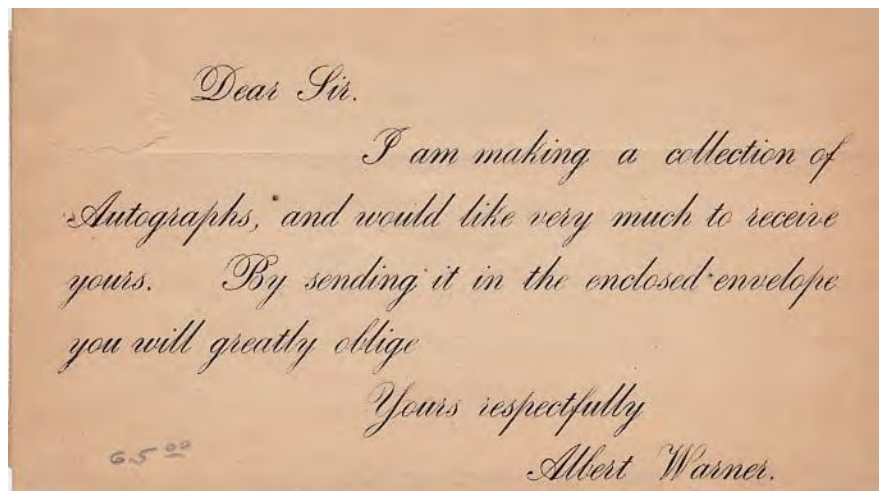 Dear Sir.
I am making a collection of
Autographs, and would like very much to receive
yours. By sending it in the enclosed envelope
you will greatly oblige
Yours respectfully
Albert Warner.
65 00